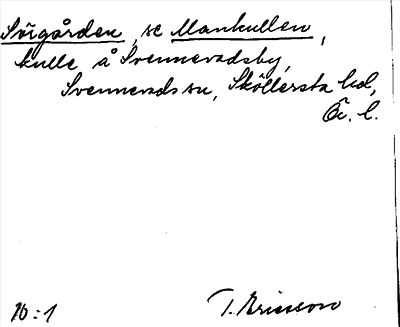 Sörgården, se Mankullen,
kulle å Svennevadsby,
Svennevads sn, Sköllersta hd,
Ör. l.
10:1
T. Ericsson